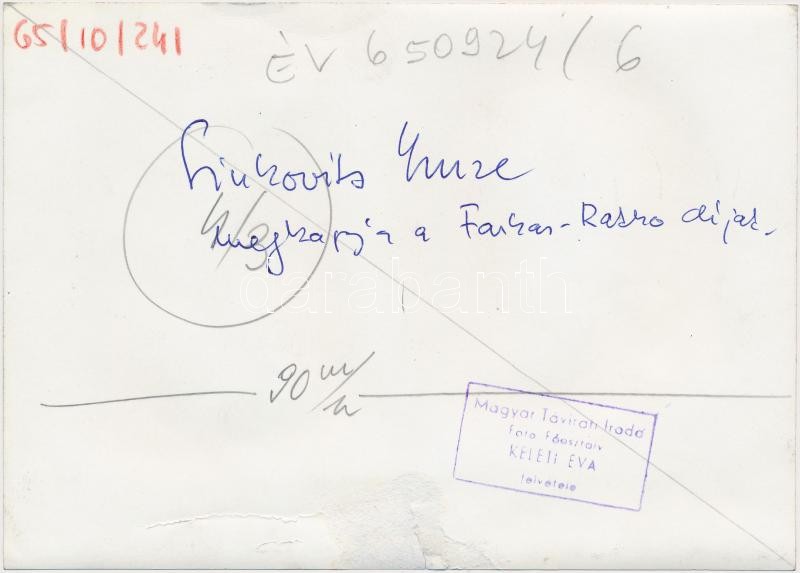 65/10/241
ÉV 650924/6
Sinkovits Imre
megkapja a Farkas-Ratko díjat.
4/3
darabanth
90 m/m
Magyar Távirati Iroda
Foto Főosztály
KELETI ÉVA
felvétele